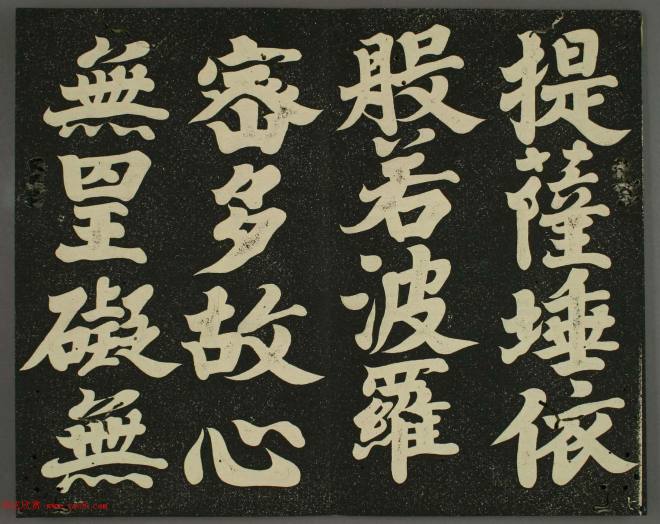 提薩埵依
般若波羅
蜜多故心
無罣礙無
www.yac8.com